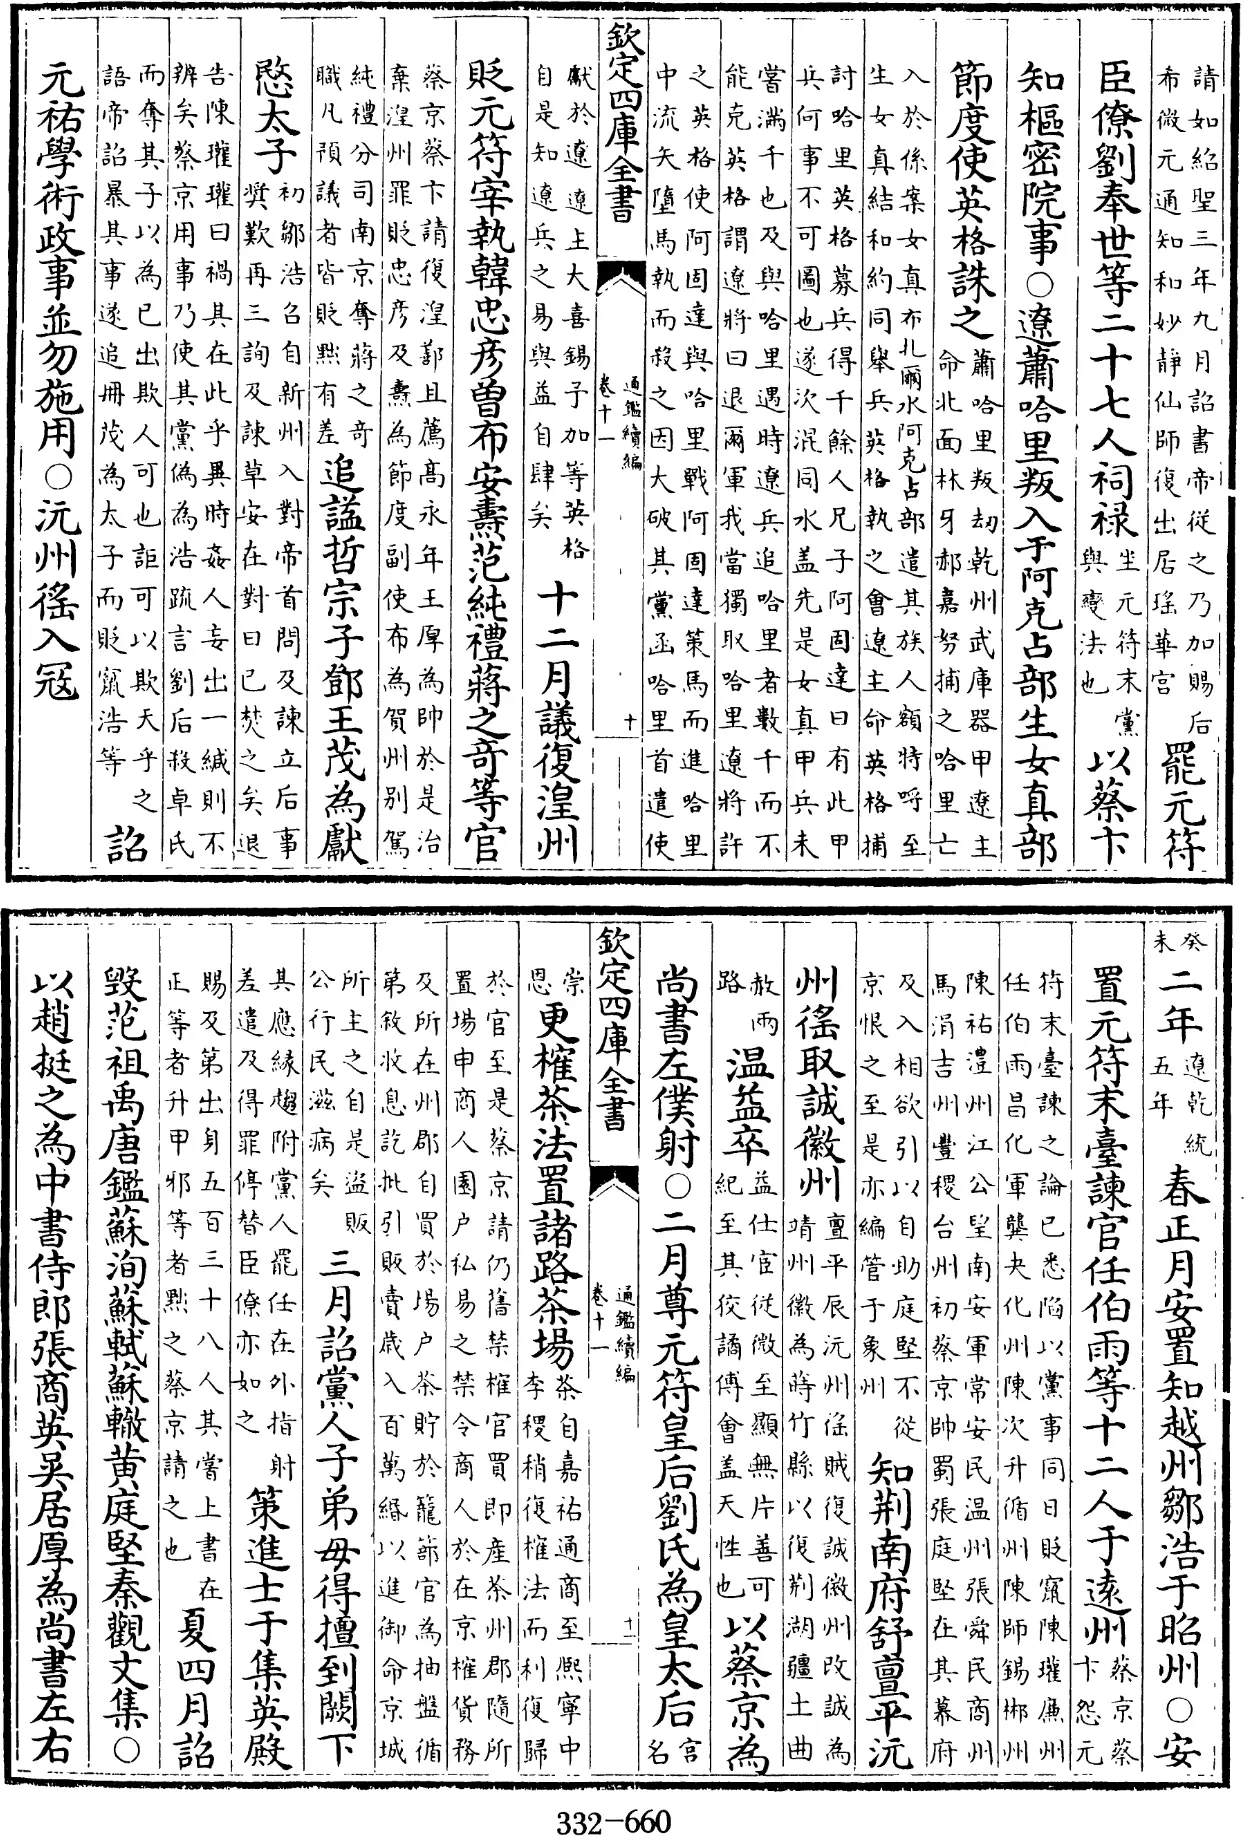 請如紹聖三年九月詔書帝從之乃加賜后希微元通知和妙靜仙師復出居瑤華宮罷元符
臣僚劉奉世等二十七人祠禄坐元符末黨與變法也以蔡卞
知樞密院事○遼蕭哈里叛入于阿克占部生女真部
節度使英格誅之蕭哈里叛刼乾州武庫器甲遼主命北面林牙郝嘉努捕之哈里亡
入於係案女真布扎爾水阿克占部遣其族人額特哷至生女真結和約同舉兵英格執之會遼主命英格捕
討哈里英格募兵得千餘人兄子阿固達曰有此甲兵何事不可圖也遂次混同水盖先是女真甲兵未
嘗滿千也及與哈里遇時遼兵追哈里者數千而不能克英格謂遼將曰退爾軍我當獨取哈里遼將許
之英格使阿固達與哈里戰阿固達策馬而進哈里中流矢墮馬執而殺之因大破其黨函哈里首遣使
欽定四庫全書 通鑑續編 卷十一 十
獻於遼遼主大喜錫予加等英格自是知遼兵之易與益自肆矣十二月議復湟州
貶元符宰執韓忠彦曾布安燾范純禮蔣之奇等官
蔡京蔡卞請復湟鄯且薦髙永年王厚為帥於是治棄湟州罪貶忠彦及燾為節度副使布為賀州别駕
純禮分司南京奪蔣之奇職凡預議者皆貶黜有差追謚哲宗子鄧王茂為獻
愍太子初鄒浩召自新州入對帝首問及諫立后事奬歎再三詢及諫草安在對曰已焚之矣退
告陳瓘瓘曰禍其在此乎異時姦人妄出一緘則不辨矣蔡京用事乃使其黨偽為浩疏言劉后殺卓氏
而奪其子以為已出欺人可也詎可以欺天乎之語帝詔暴其事遂追冊茂為太子而貶竄浩等詔
元祐學術政事並勿施用○沅州徭入冦
癸未二年遼乾統五年春正月安置知越州鄒浩于昭州○安
置元符末臺諫官任伯雨等十二人于遠州蔡京蔡卞怨元
符末臺諫之論已悉陷以黨事同日貶竄陳瓘廉州任伯雨昌化軍龔夬化州陳次升循州陳師錫郴州
陳祐澧州江公望南安軍常安民温州張舜民商州馬涓吉州豐稷台州初蔡京帥蜀張庭堅在其幕府
及入相欲引以自助庭堅不從京恨之至是亦編管于象州知荆南府舒亶平沅
州徭取誠徽州亶平辰沅州徭賊復誠徽州改誠為靖州徽為蒔竹縣以復荆湖疆土曲
赦兩路温益卒益仕宦從微至顯無片善可紀至其狡譎傅會盖天性也以蔡京為
尚書左僕射○二月尊元符皇后劉氏為皇太后宫名
欽定四庫全書 通鑑續編 卷十一 十一
崇恩更榷茶法置諸路茶場茶自嘉祐通商至熙寧中李稷稍復榷法而利復歸
於官至是蔡京請仍舊禁榷官買即產茶州郡隨所置場申商人園户私易之禁令商人於在京榷貨務
及所在州郡自買於場户茶貯於籠篰官為抽盤循第敘收息訖批引販賣歲入百萬緡以進御命京城
所主之自是盜販公行民滋病矣三月詔黨人子弟毋得擅到闕下
其應縁趨附黨人罷任在外指射差遣及得罪停替臣僚亦如之策進士于集英殿
賜及第出身五百三十八人其嘗上書在正等者升甲邪等者黜之蔡京請之也夏四月詔
毁范祖禹唐鑑蘇洵蘇軾蘇轍黄庭堅秦觀文集○
以趙挺之為中書侍郎張商英吳居厚為尚書左右
332-660